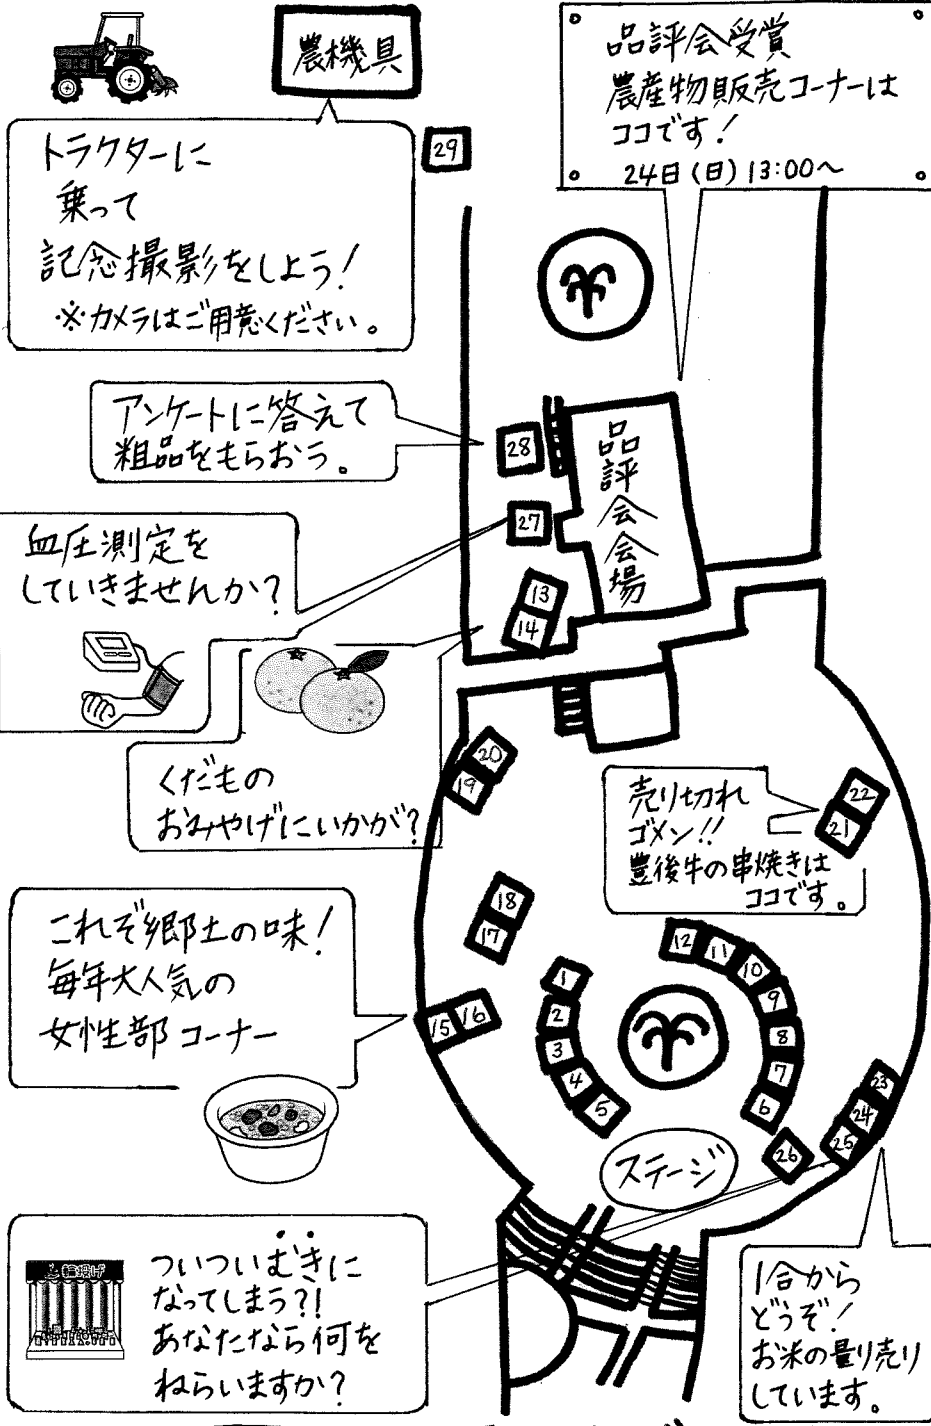 農機具
品評会受賞
農産物販売コーナーは
ココです!
24日(日)13:00〜
トラクターに
乗って
記念撮影をしよう!
※カメラはご用意ください。
29
アンケートに答えて
粗品をもらおう。
28
品評会会場
27
血圧測定を
していきませんか?
13
14
くだもの
おみやげにいかが?
20
19
売り切れ
ゴメン!!
豊後牛の串焼きは
ココです。
22
21
18
17
これぞ郷土の味!
毎年大人気の
女性部コーナー
15 16
1
2
3
4
5
12
11
10
9
8
7
6
23
24
25
26
ステージ
輪投げ
ついついむきに
なってしまう?!
あなたなら何を
ねらいますか?
1合から
どうぞ!
お米の量り売り
しています。